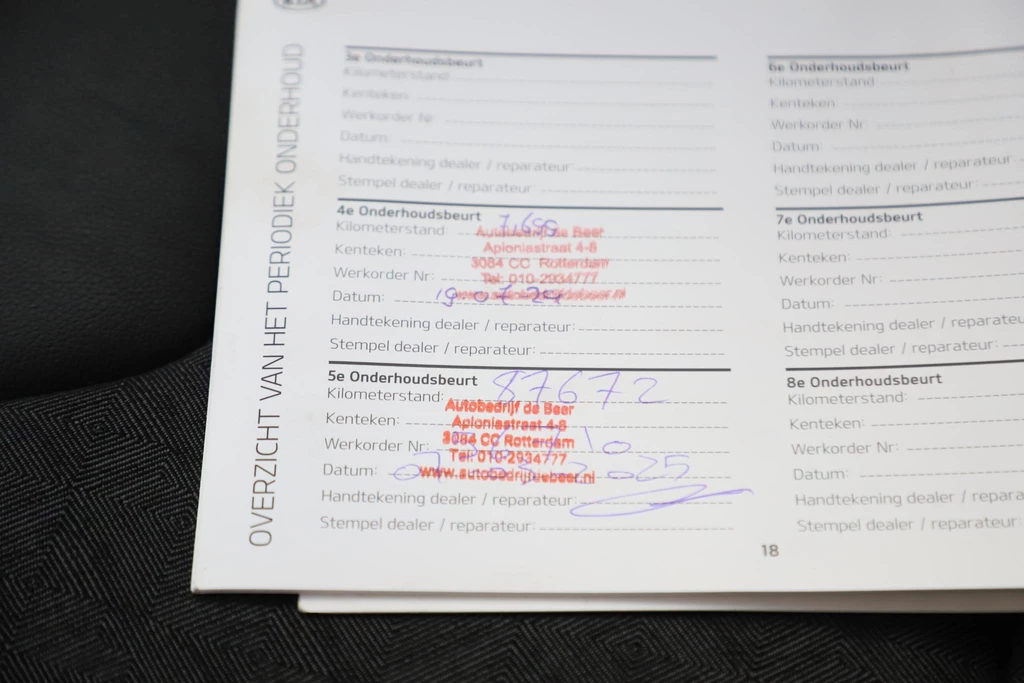 KIA
OVERZICHT VAN HET PERIODIEK ONDERHOUD
3e Onderhoudsbeurt
Kilometerstand
Kenteken:
Werkorder Nr:
Datum:
Handtekening dealer / reparateur:
Stempel dealer / reparateur:
4e Onderhoudsbeurt
Kilometerstand
Kenteken:
Werkorder Nr:
Datum: 19-07-24
Handtekening dealer / reparateur:
Stempel dealer / reparateur:
Autobedrijf de Beer
Aploniastraat 4-8
3084 CC Rotterdam
Tel: 010-2934777
5e Onderhoudsbeurt
Kilometerstand: 87672
Kenteken:
Werkorder Nr:
Datum: 2025
Handtekening dealer / reparateur:
Stempel dealer / reparateur:
Autobedrijf de Beer
Aploniastraat 4-8
3084 CC Rotterdam
Tel: 010-2934777
www.autobedrijfdebeer.nl
6e Onderhoudsbeurt
Kilometerstand
Kenteken
Werkorder Nr
Datum:
Handtekening dealer / reparateur
Stempel dealer / reparateur:
7e Onderhoudsbeurt
Kilometerstand:
Kenteken:
Werkorder Nr:
Datum:
Handtekening dealer / reparateu
Stempel dealer / reparateur:
8e Onderhoudsbeurt
Kilometerstand:
Kenteken:
Werkorder Nr:
Datum:
Handtekening dealer / repara
Stempel dealer / reparateur:
18